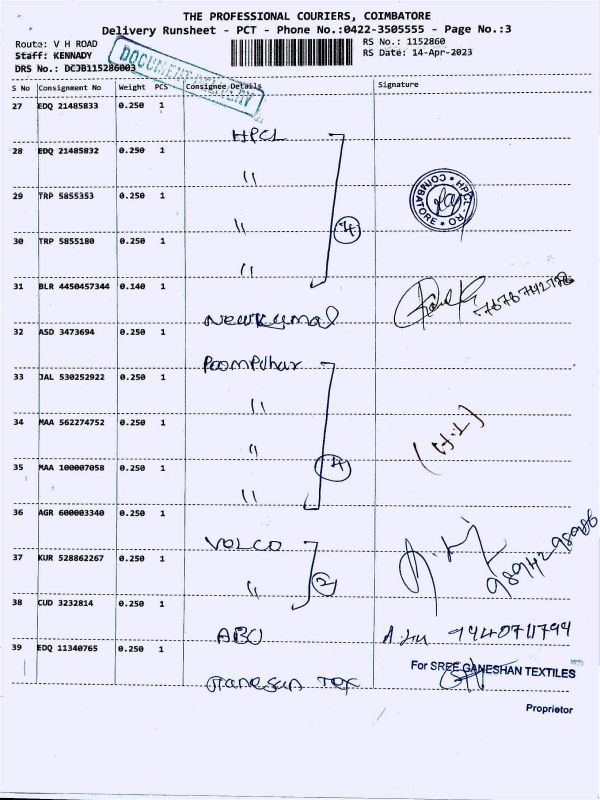 THE PROFESSIONAL COURIERS, COIMBATORE
Delivery Runsheet - PCT - Phone No.:0422-3505555 - Page No.:3
Route: V H ROAD
RS No.: 1152860
Staff: KENNADY
RS Date: 14-Apr-2023
DRS No.: DCJB115286003
DOCUMENT DELIVERY
S No Consignment No Weight PCS Consignee Details Signature
27 EDQ 21485833 0.250 1
HPCL
28 EDQ 21485832 0.250 1
"
29 TRP 5855353 0.250 1
COIMBATORE * HPCL-RO *
" 4
30 TRP 5855180 0.250 1
"
31 BLR 4450457344 0.140 1
Newkumal
32 ASD 3473694 0.250 1
Poompuhar
33 JAL 530252922 0.250 1
"
34 MAA 562274752 0.250 1
" 4
35 MAA 100007058 0.250 1
"
36 AGR 600003340 0.250 1
VOLCO
37 KUR 528862267 0.250 1
" 2
38 CUD 3232814 0.250 1
ABU
39 EDQ 11340765 0.250 1
For SREE GANESHAN TEXTILES
Ganesan Tex
Proprietor